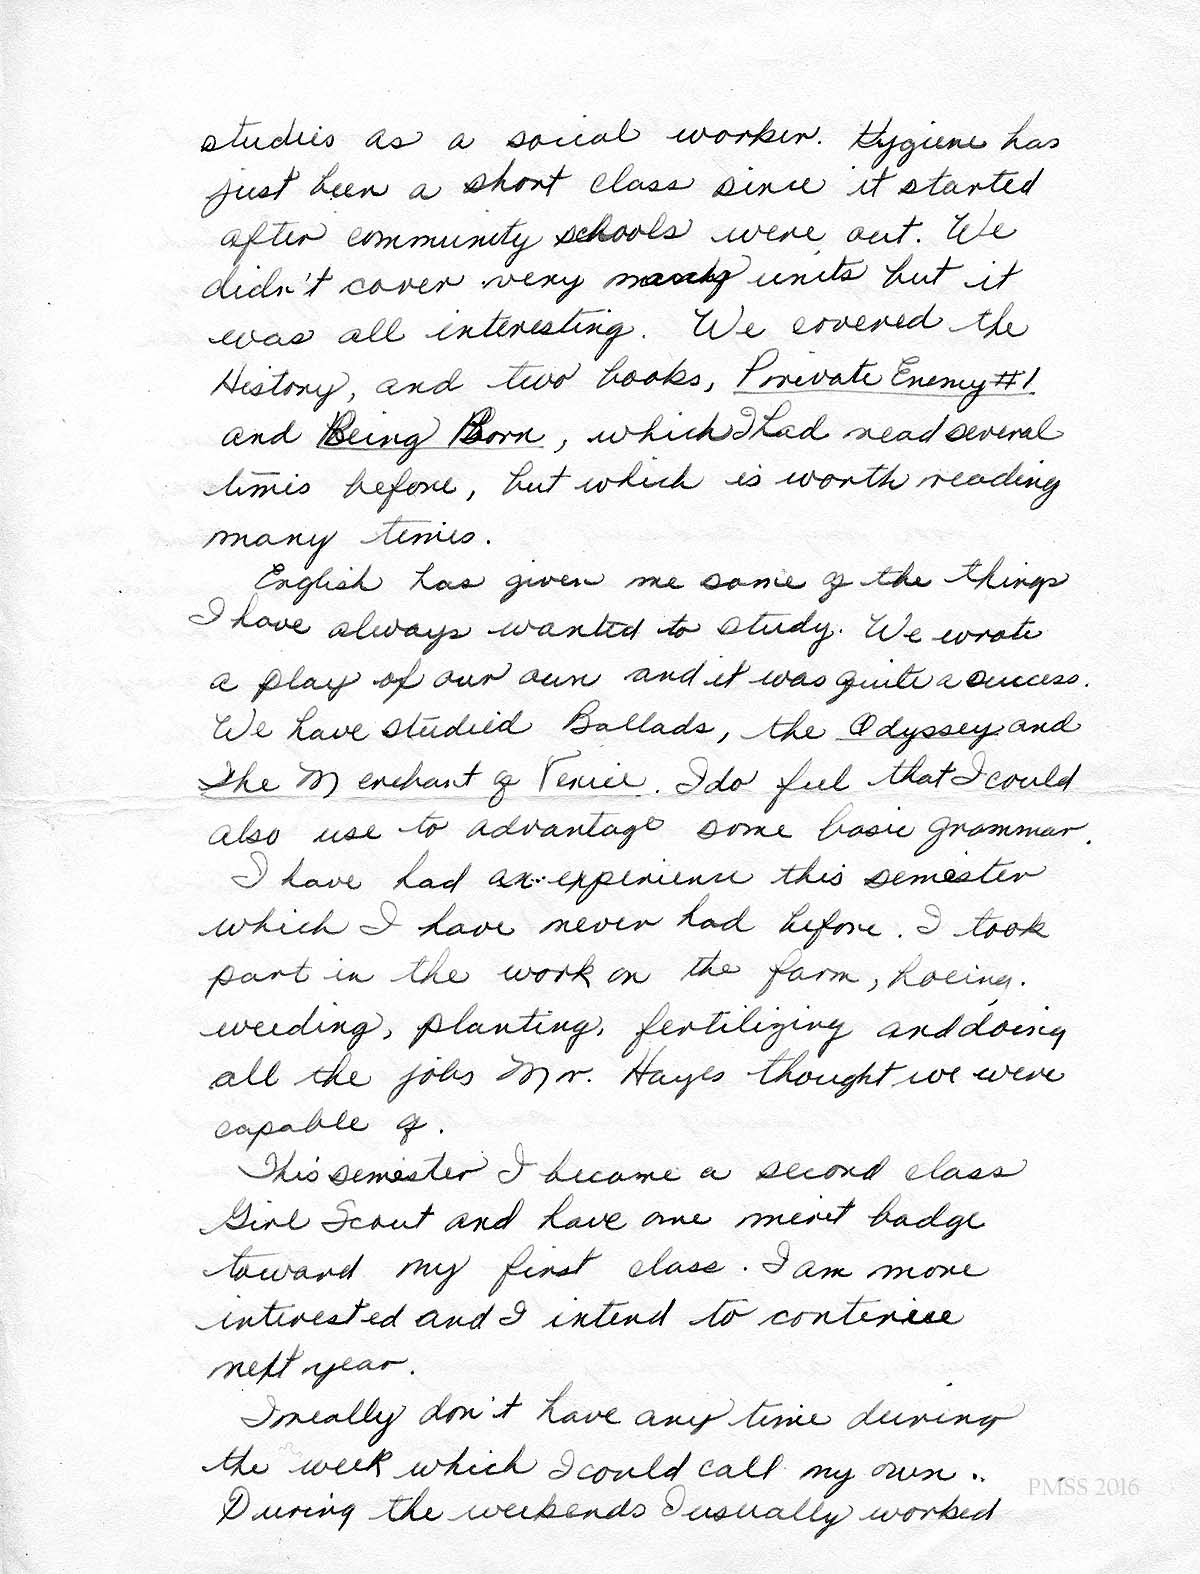 studies as a social worker. Hygiene has
just been a short class since it started
after community schools were out. We
didn't cover very many units but it
was all interesting. We covered the
History, and two books, Private Enemy #1
and Being Born, which I had read several
times before, but which is worth reading
many times.
English has given me some of the things
I have always wanted to study. We wrote
a play of our own and it was quite a success.
We have studied Ballads, the Odyssey and
The Merchant of Venice. I do feel that I could
also use to advantage some basic grammar.
I have had an experience this semester
which I have never had before. I took
part in the work on the farm, hoeing.
weeding, planting, fertilizing and doing
all the jobs Mr. Hayes thought we were
capable of.
This semester I became a second class
Girl Scout and have one merit badge
toward my first class. I am more
interested and I intend to continue
next year.
I really don't have any time during
the week which I could call my own..
During the weekends I usually worked
PMSS 2016